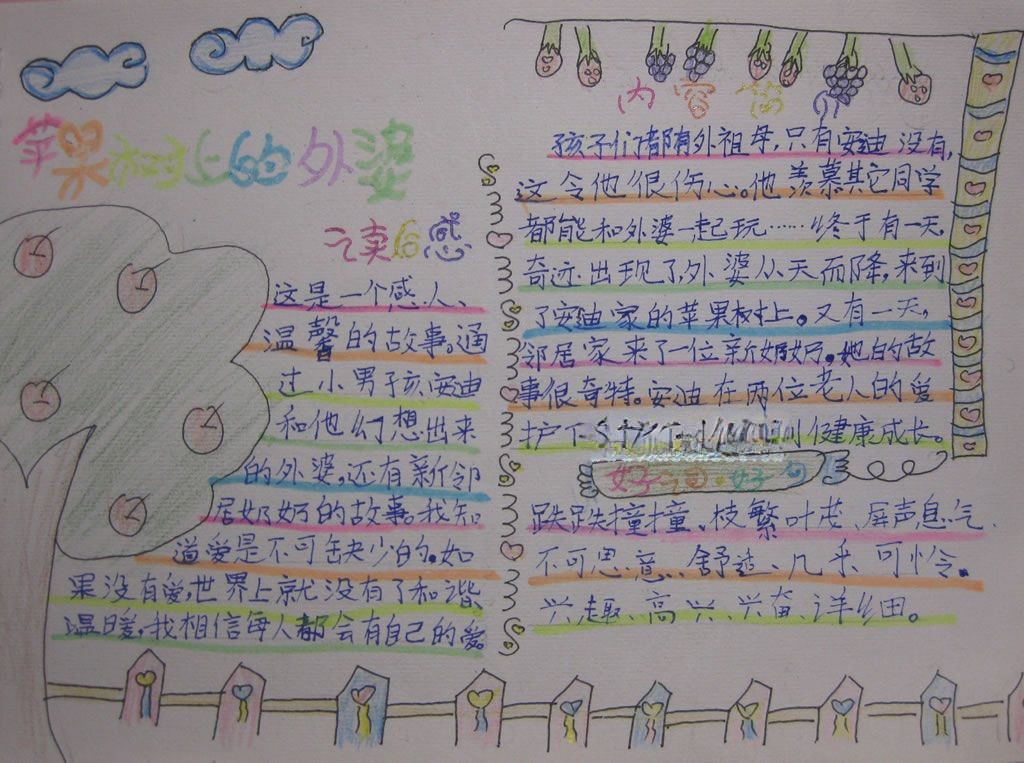 苹果树上的外婆
读后感
这是一个感人、
温馨的故事。通
过小男孩安迪
和他幻想出来
的外婆,还有新邻
居奶奶的故事。我知
道爱是不可缺少的。如
果没有爱,世界上就没有了和谐
温暖,我相信每人都会有自己的爱。
内容简介
孩子们都有外祖母,只有安迪没有,
这令他很伤心。他羡慕其它同学
都能和外婆一起玩……终于有一天,
奇迹出现了,外婆从天而降,来到
了安迪家的苹果树上。又有一天,
邻居家来了一位新奶奶。她的故
事很奇特。安迪在两位老人的爱
护下健康成长。
好词·好句
跌跌撞撞、枝繁叶茂、屏声息气、
不可思意、舒适、几乎、可怜。
兴趣、高兴、兴奋、详细。